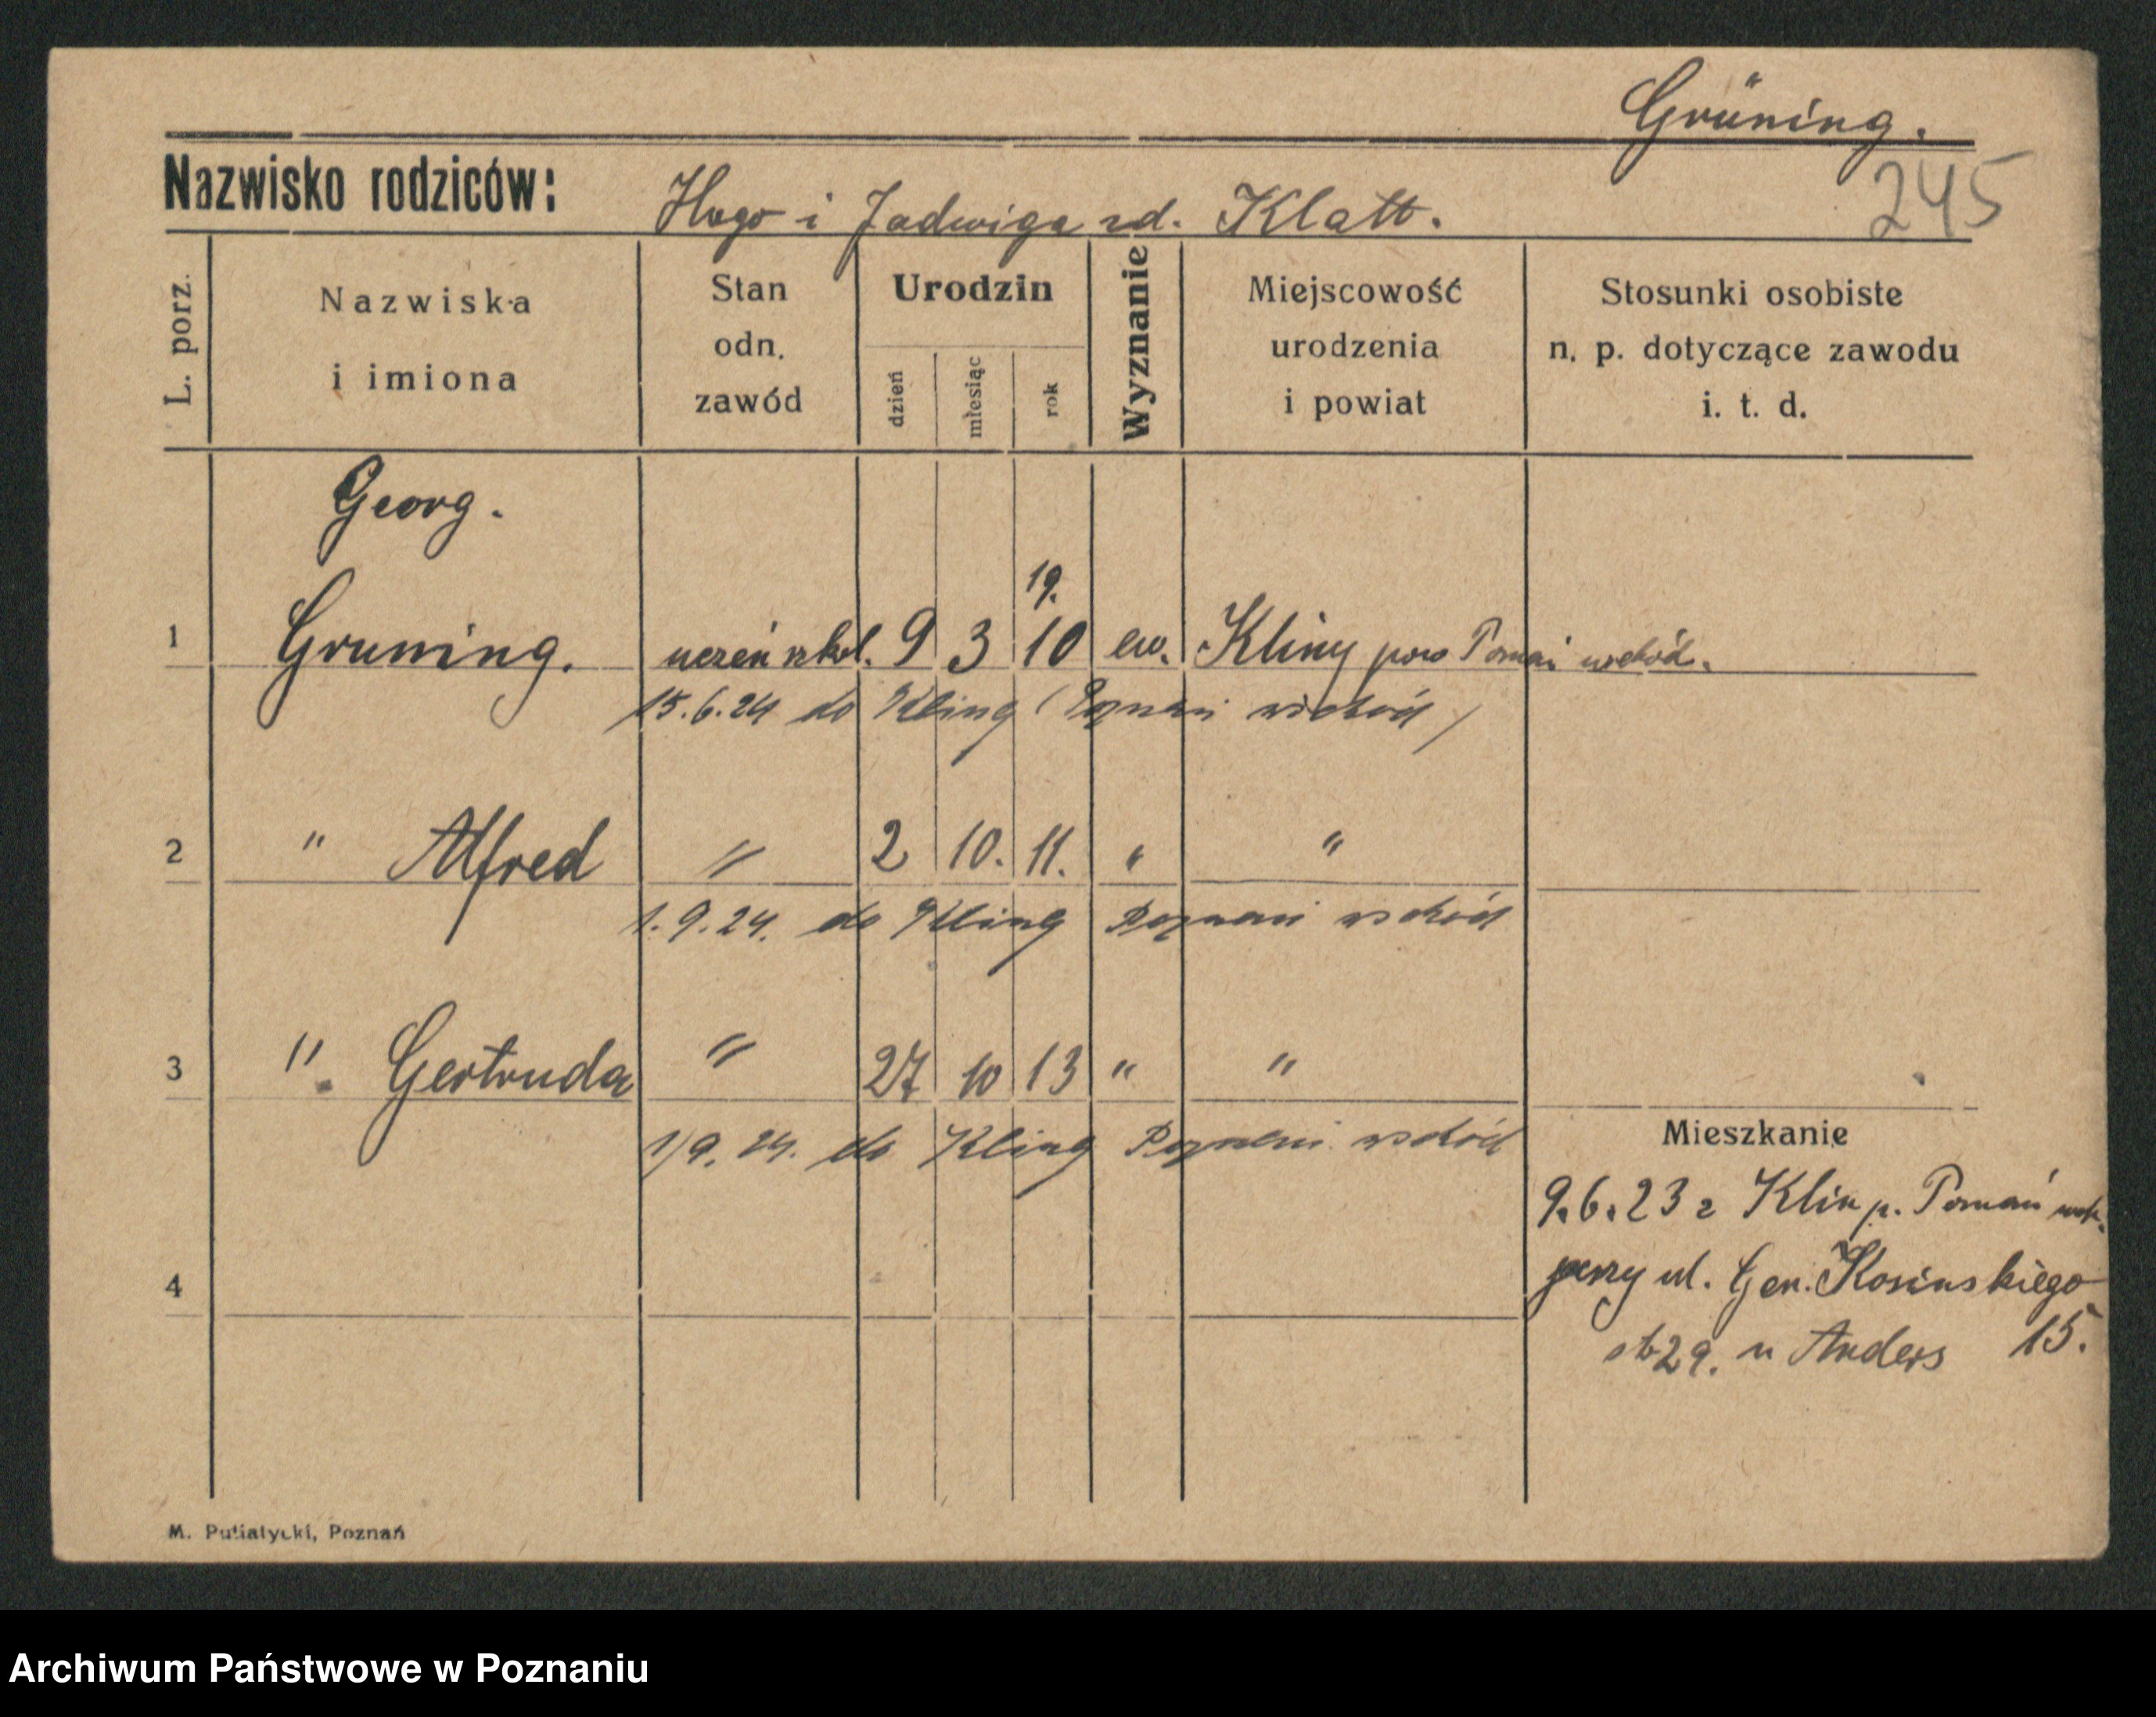 Grüning.
245
Nazwisko rodziców: Hugo i Jadwiga zd. Klatt.
L. porz. Nazwiska i imiona Stan odn. zawód Urodzin dzień miesiąc rok Wyznanie Miejscowość urodzenia i powiat Stosunki osobiste n. p. dotyczące zawodu i. t. d.
Georg.
19.
1 Gruning. uczeń szkol. 9 3 10 ew. Kliny pow Poznań wschód.
15.6.24 do Kliny (Poznań wschód)
2 " Alfred " 2 10. 11. " "
1.9.24. do Kliny Poznań wschód
3 " Gertruda " 27 10 13 " "
1/9.24. do Kliny Poznań wschód
Mieszkanie
9.6.23 z Klin p. Poznań wsch.
4 przy ul. Gen. Kosinskiego
29. u Anders 15.
M. Putiatycki, Poznań
Archiwum Państwowe w Poznaniu